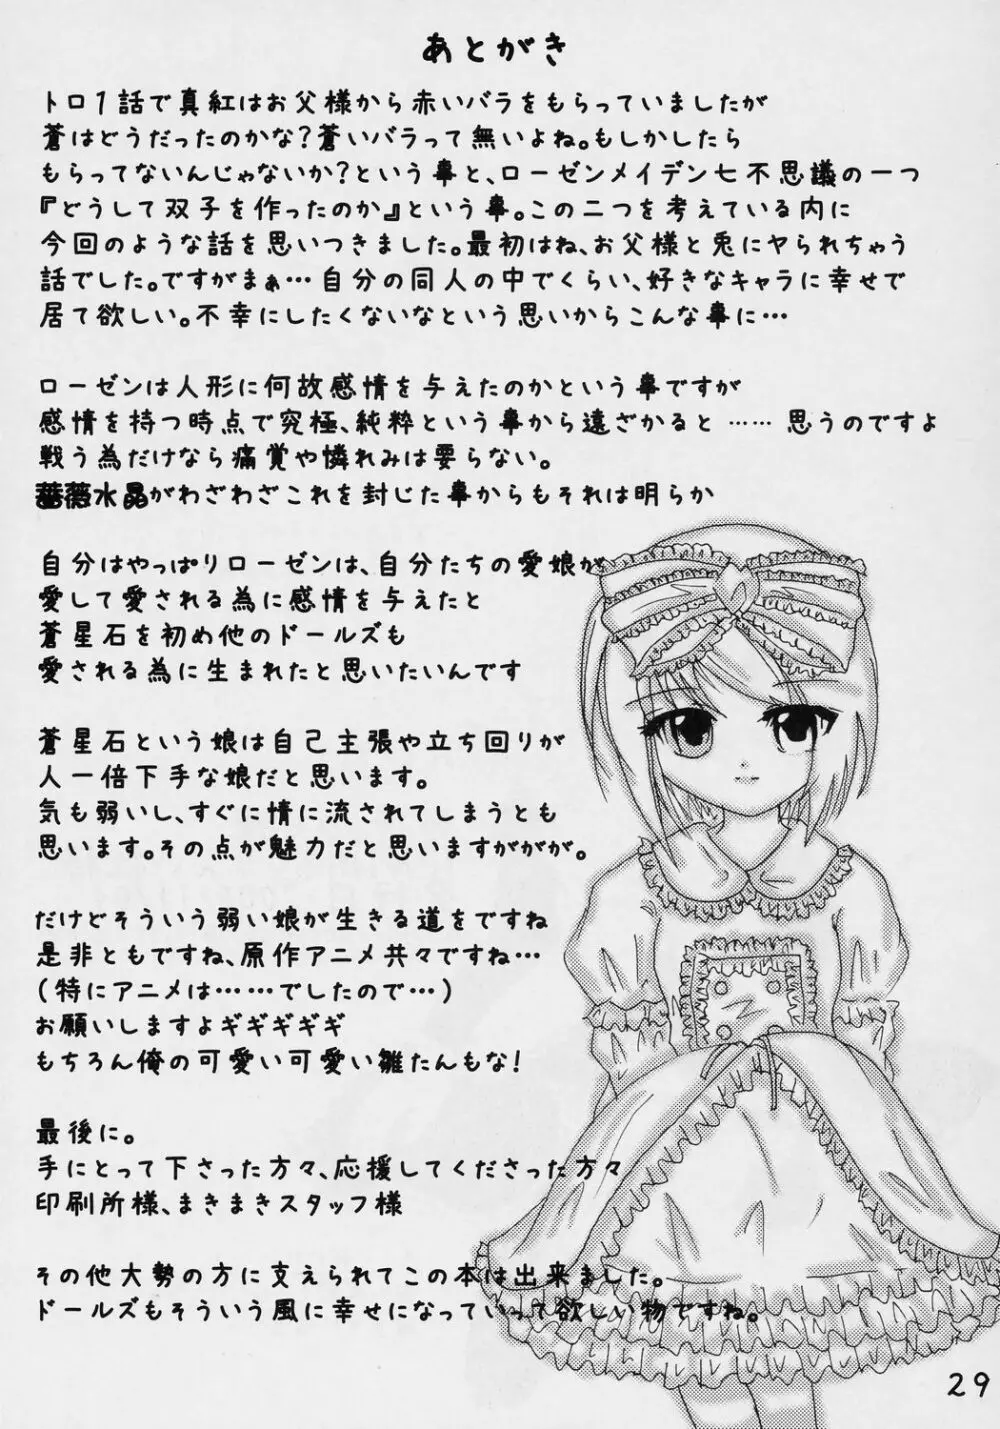 あとがき
トロ1話で真紅はお父様から赤いバラをもらっていましたが
蒼はどうだったのかな？蒼いバラって無いよね。もしかしたら
もらってないんじゃないか？という事と、ローゼンメイデン七不思議の一つ
『どうして双子を作ったのか』という事。この二つを考えている内に
今回のような話を思いつきました。最初はね、お父様と兎にヤられちゃう
話でした。ですがまぁ…自分の同人の中でくらい、好きなキャラに幸せで
居て欲しい。不幸にしたくないなという思いからこんな事に…
ローゼンは人形に何故感情を与えたのかという事ですが
感情を持つ時点で究極、純粋という事から遠ざかると……思うのですよ
戦う為だけなら痛覚や憐れみは要らない。
薔薇水晶がわざわざこれを封じた事からもそれは明らか
自分はやっぱりローゼンは、自分たちの愛娘が
愛して愛される為に感情を与えたと
蒼星石を初め他のドールズも
愛される為に生まれたと思いたいんです
蒼星石という娘は自己主張や立ち回りが
人一倍下手な娘だと思います。
気も弱いし、すぐに情に流されてしまうとも
思います。その点が魅力だと思いますががが。
だけどそういう弱い娘が生きる道をですね
是非ともですね、原作アニメ共々ですね…
（特にアニメは……でしたので…）
お願いしますよギギギギギ
もちろん俺の可愛い可愛い雛たんもな！
最後に。
手にとって下さった方々、応援してくださった方々
印刷所様、まきまきスタッフ様
その他大勢の方に支えられてこの本は出来ました。
ドールズもそういう風に幸せになっていって欲しい物ですね。
29